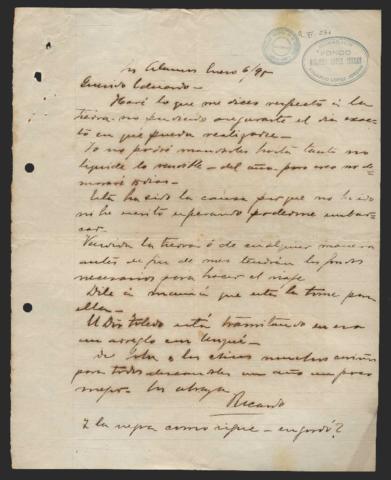 Alamos Enero 6/95
Querido Eduardo—
Haré lo que me dices respecto á la
tierra no pudiendo asegurarte el dia exac-
to en que pueda realizarse—
Yo no podré mandarles hasta tanto no
liquide lo vendible— del año, pero creo no de-
moraré 10 dias—
Esta ha sido la causa por que no
he escrito esperando poderme embar-
car.
Vendida la tierra ó de cualquier manera
antes de fin de mes tendrán los fondos
necesarios para hacer el viaje
Dile á mamá que esta la tome por
ella—
El Dr Toledo está tramitando
un arreglo con
De Lola y los chicos muchos cariños
para todos deseandoles un año un poco
mejor— los abraza
Ricardo
Y la negra como sigue— engordó?
FONDO